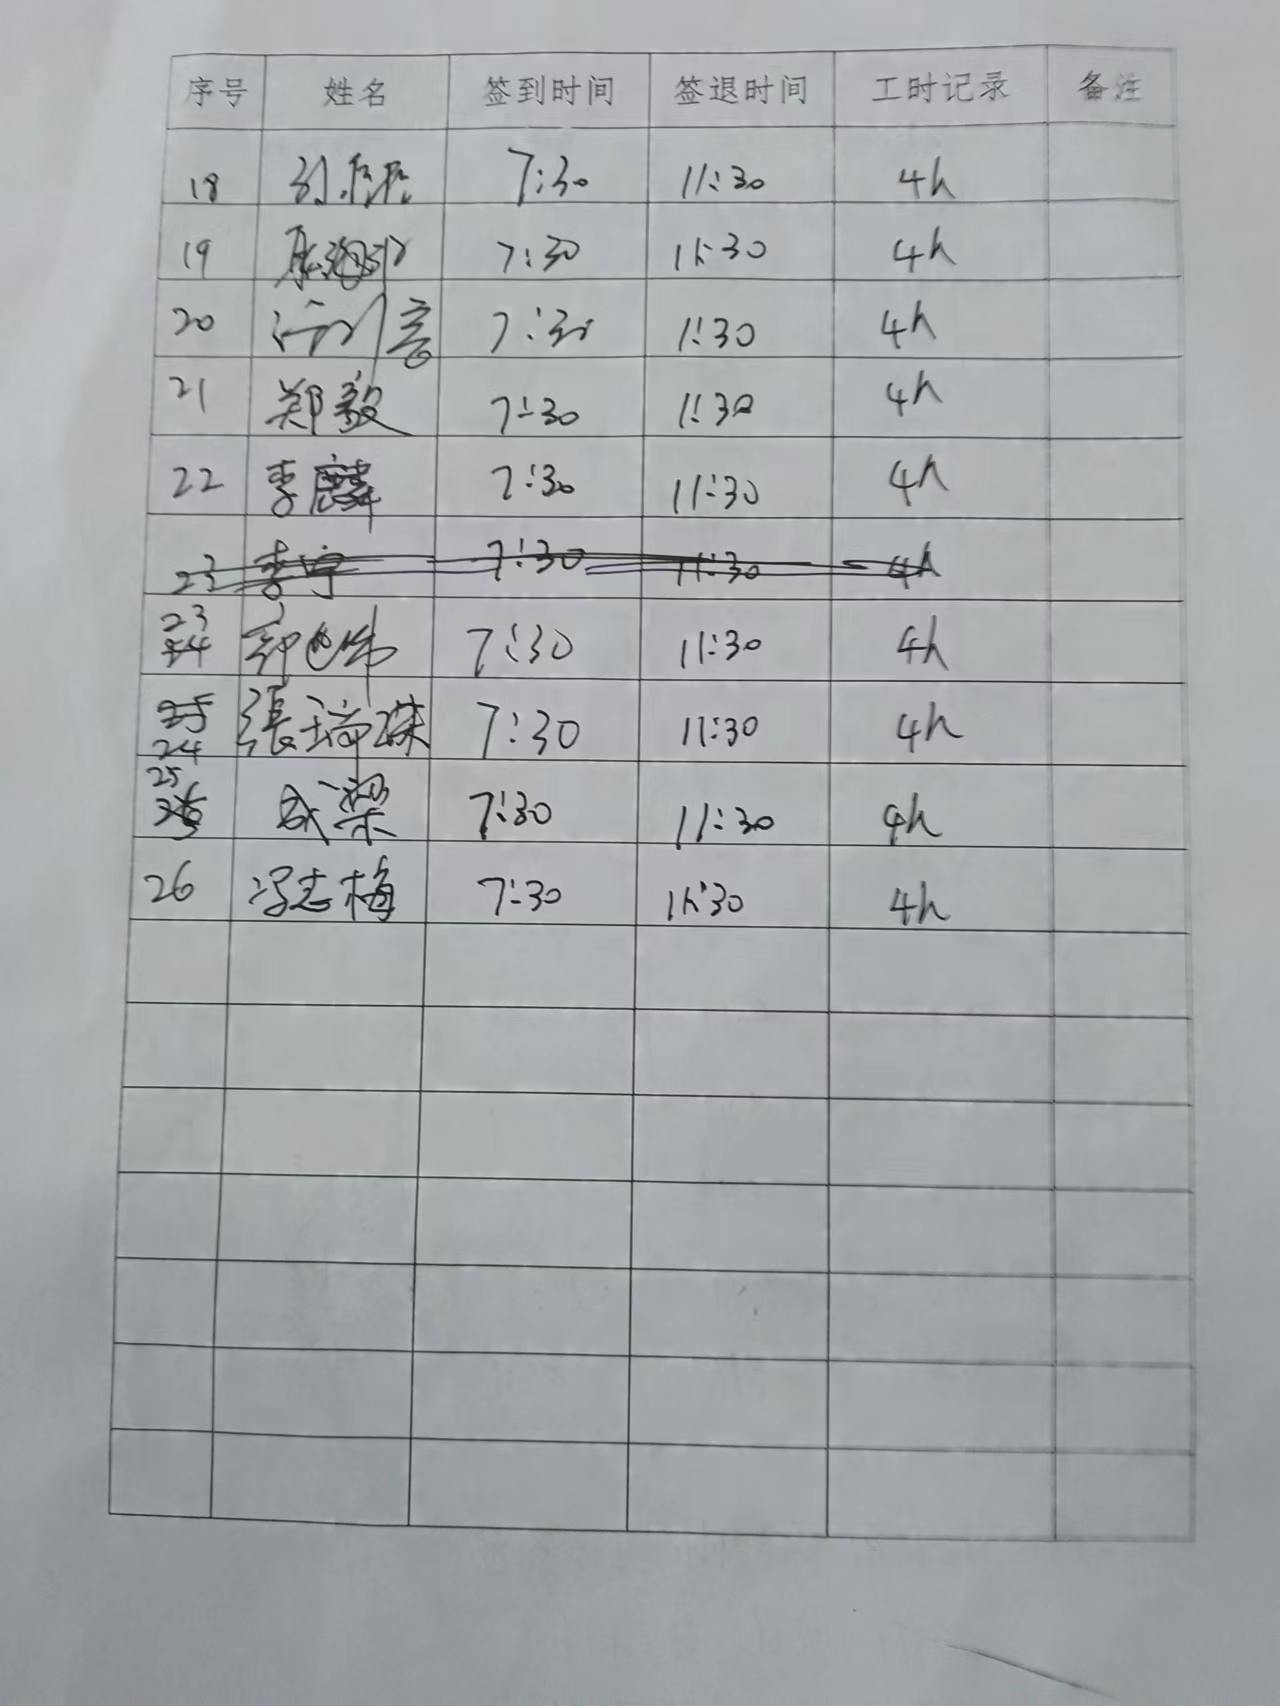 序号 姓名 签到时间 签退时间 工时记录 备注
18 7:30 11:30 4h
19 7:30 11:30 4h
20 7:30 11:30 4h
21 郑毅 7:30 11:30 4h
22 李麟 7:30 11:30 4h
23 李宁 7:30 11:30 4h
23 7:30 11:30 4h
24 張瑞琪 7:30 11:30 4h
25 成梁 7:30 11:30 4h
26 冯志梅 7:30 11:30 4h